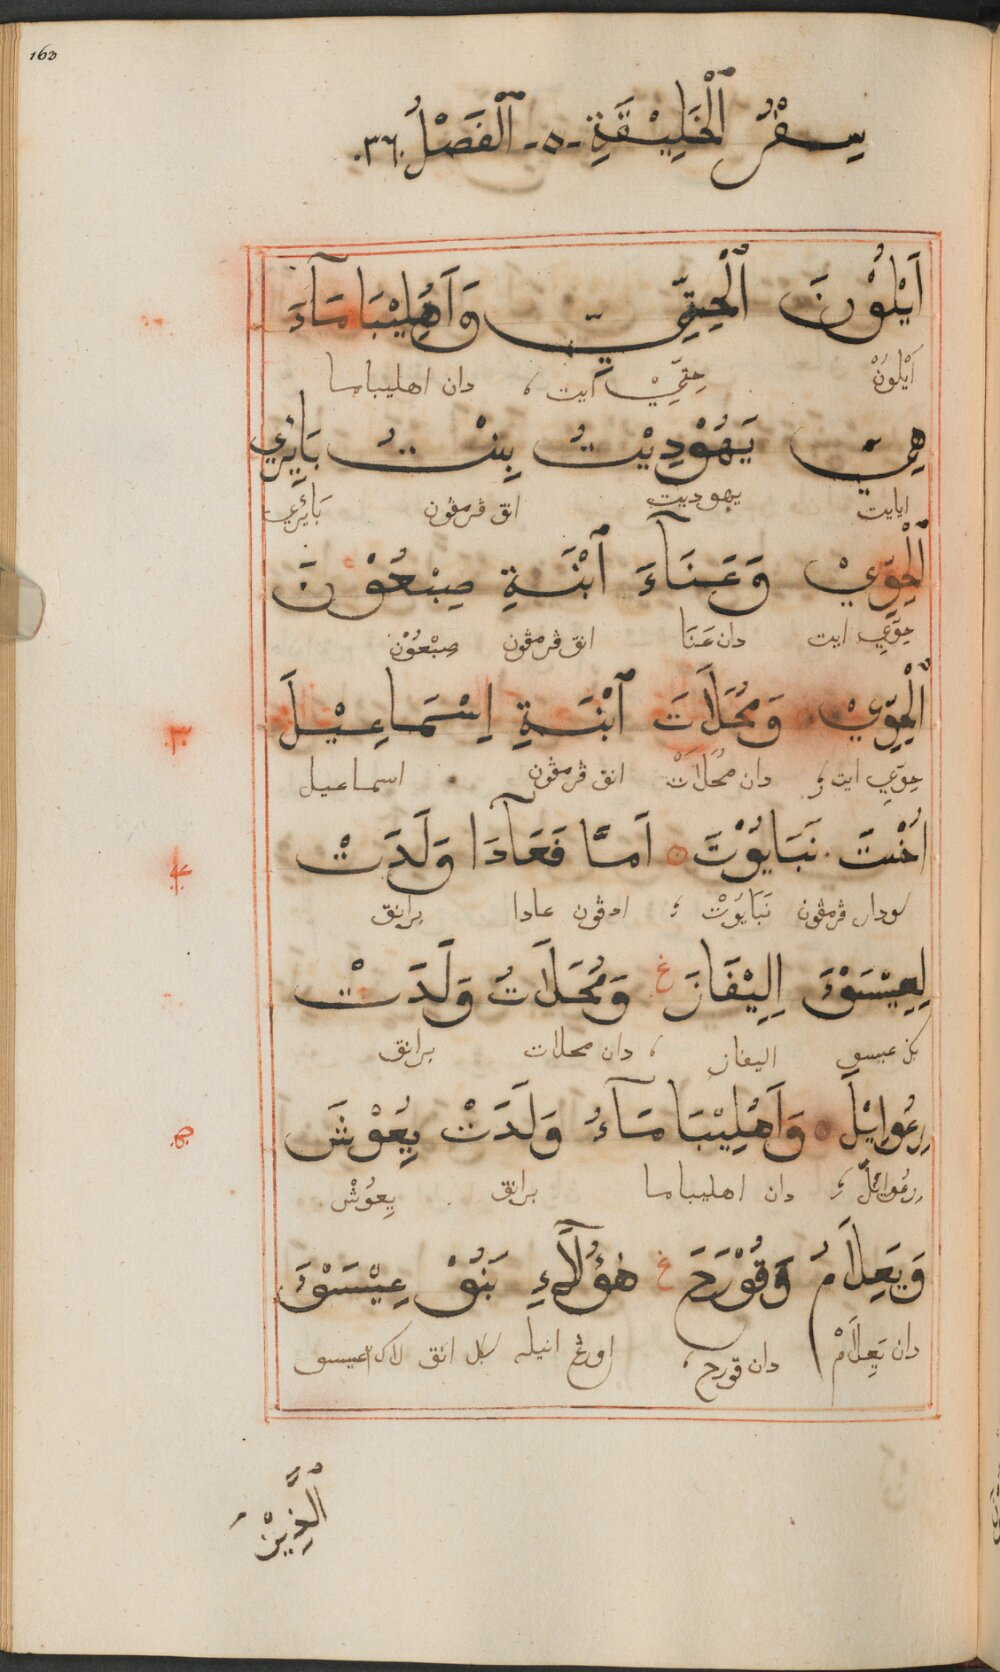 163
سِفْرُ ٱلْخَلِيْقَةِ -٥- ٱلْفَصْلُ .٣٦.
اَيْلُوْنَ ٱلْحِتِّيِّ وَاَهُلِيْبَامَآءَ
اَيْلُونْ حِتِّيْ ايت ، دان اهليباما
هِيَ يَهُوْدِيْتُ بِنْتُ بَائِرِي
ايايت يهوديت انق ڤرمڤون بَائِرِي
ٱلْحِوِّيْ وَعَنَآءَ ٱبْنَةِ صِبْعُوْنَ
حِوِّي ايت دان عَنَا انق ڤرمڤون صِبْعُوْن
ٱلْحِوِّيْ وَمُحَلَاتَ ٱبْنَةِ اِسْمَاعِيْلَ
.٣.
حِوِّي ايت ، دان مُحَلَاتْ انق ڤرمڤون اسماعيل
اُخْتَ نَبَايُوْتَ ۝ اَمَّا فَعَادَآ وَلَدَتْ
.٤.
سودار ڤرمڤون نَبَايُوْتْ ؛ ادڤون عادا برانق
لِعِيْسَوْءَ اِلِيْفَازَ غ وَمُحَلَاتُ وَلَدَتْ
بݢي عيسو اليفاز ، دان محلات برانق
رِعُوايْلَ ۝ وَاَهُلِيْبَامَآءُ وَلَدَتْ يِعُوْشَ
.٥.
رِعُوائِلْ ؛ دان اهليباما برانق يِعُوْشْ
وَيَعِلَامَ وَقُوْرَحَ غ هٰؤُلَآءِ بَنُوْ عِيْسَوْءَ
دان يَعِلَامْ دان قورح ، اورڠ انيله سكل انق لاكي عيسو
ٱلَّذِيْنَ